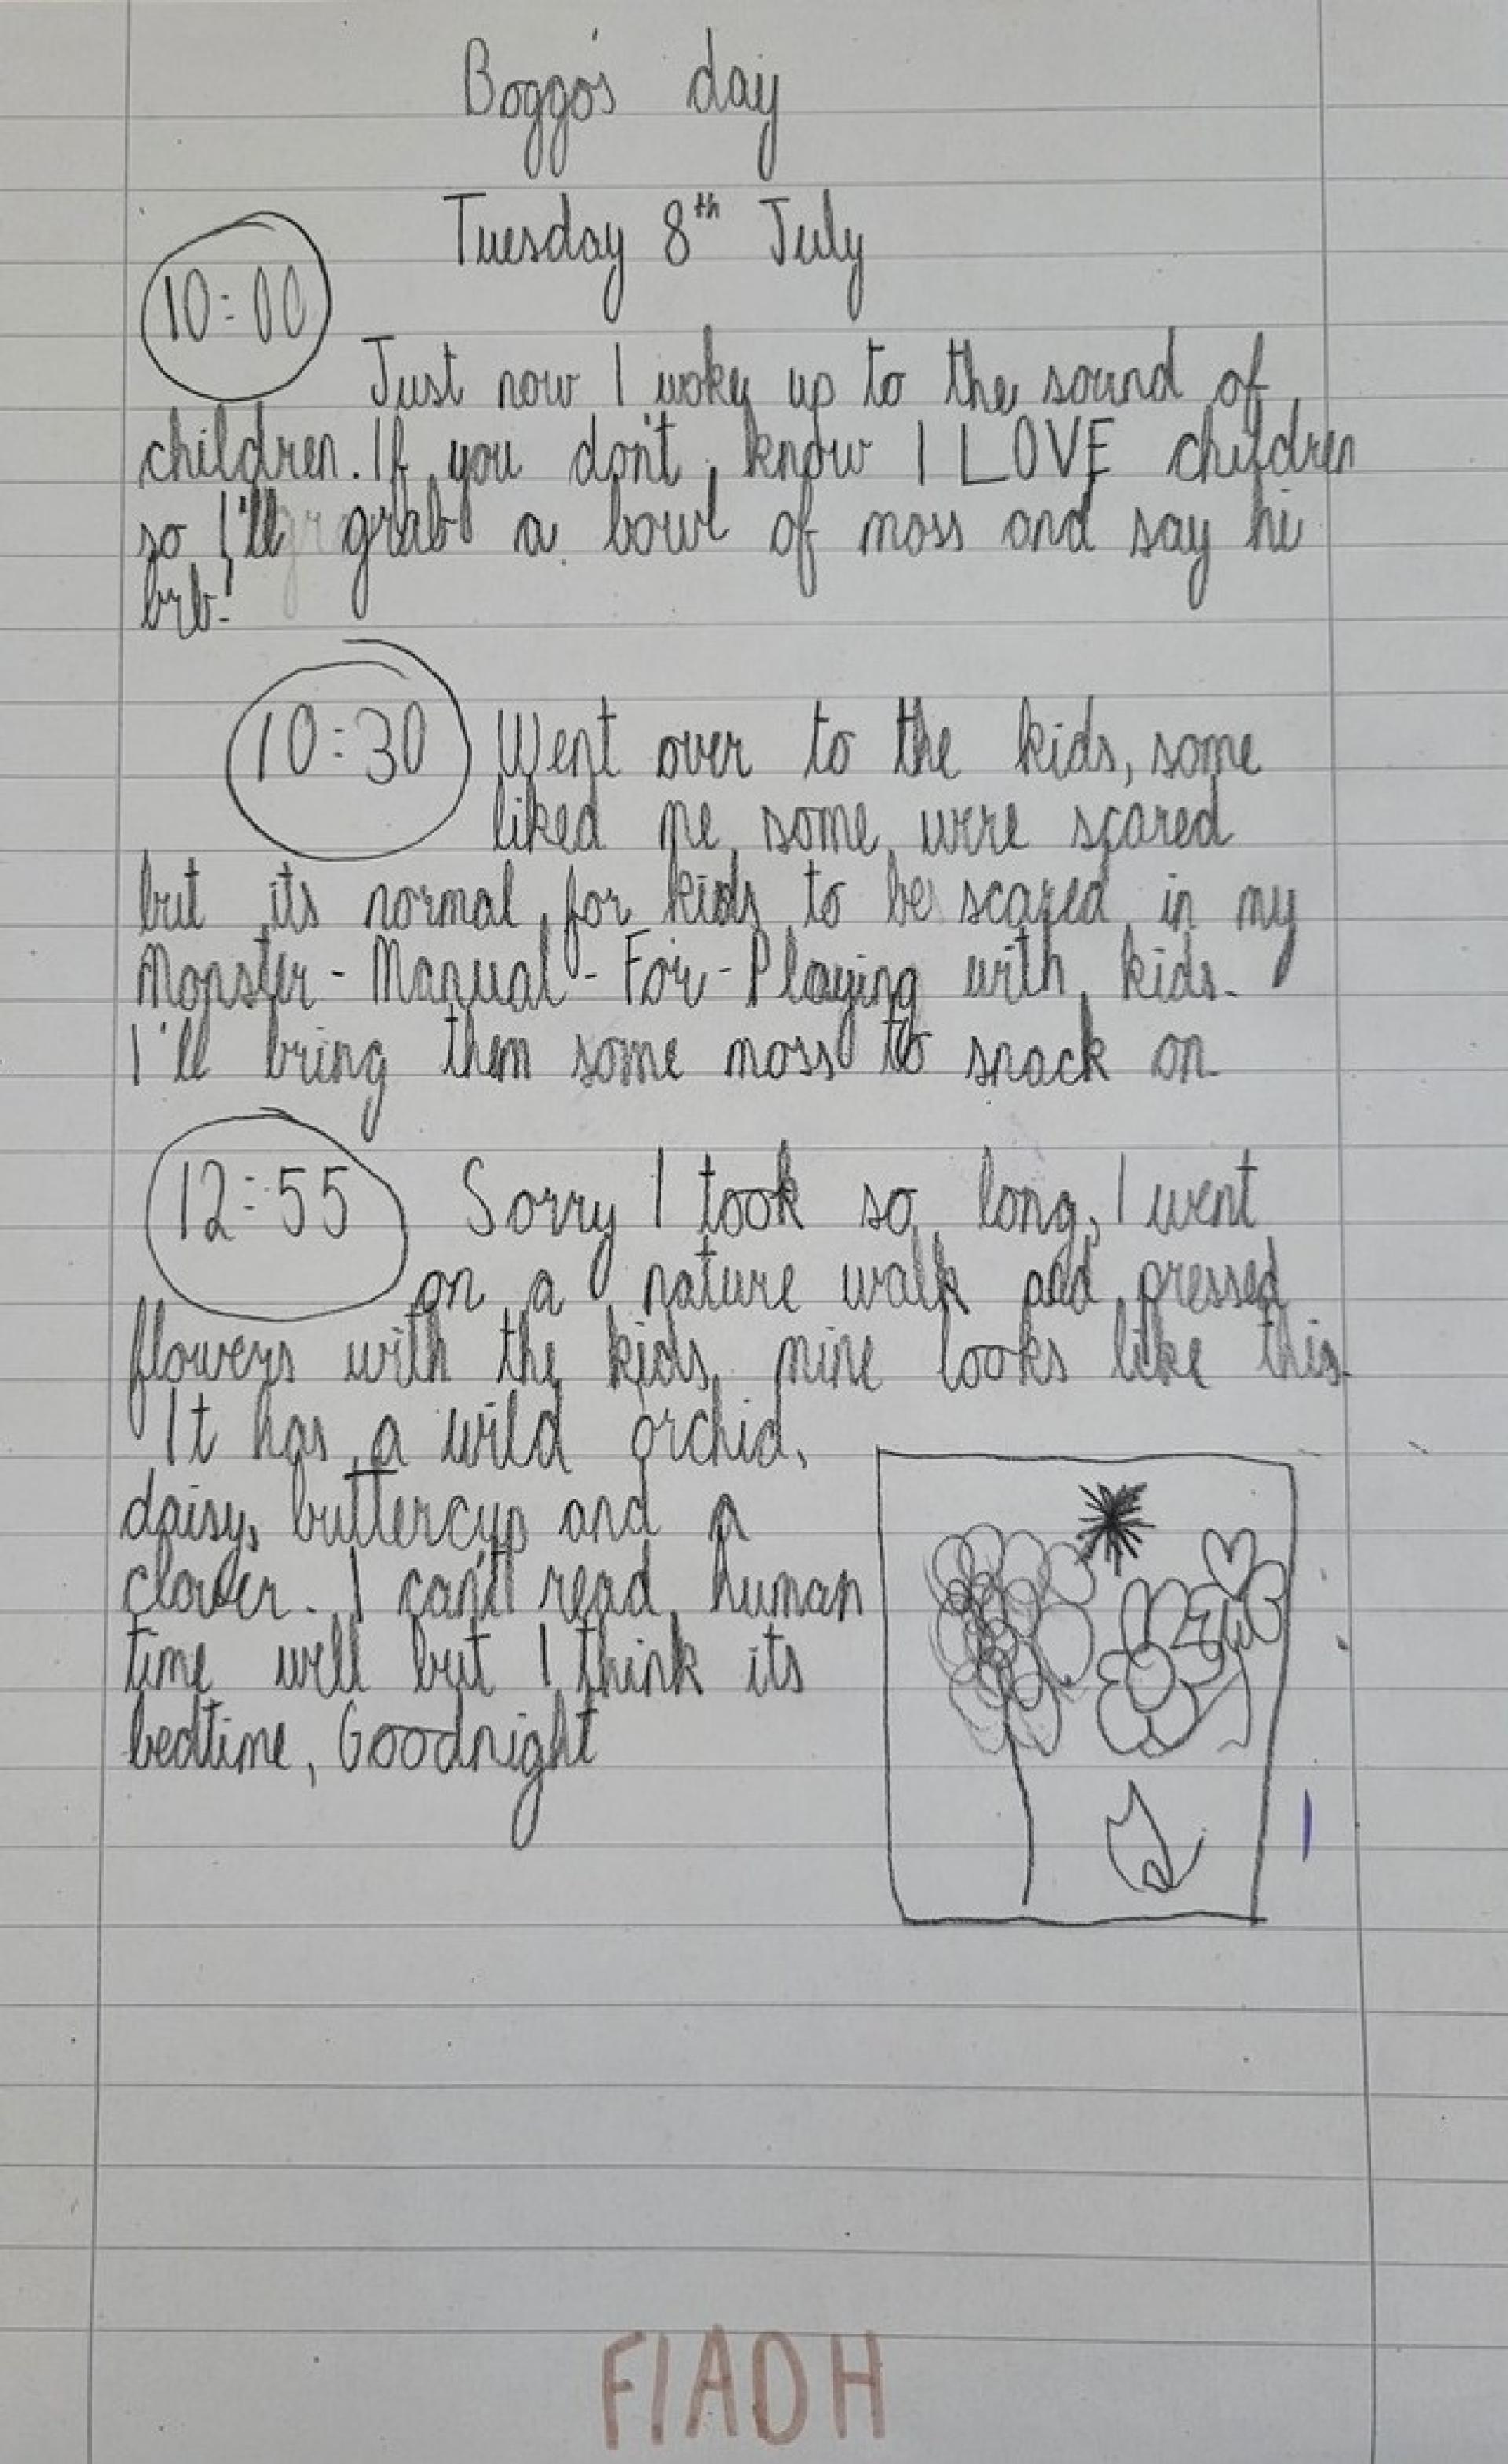 Boggo's day
Tuesday 8th July
10:00
Just now I woke up to the sound of
children. If you don't know I LOVE children
so I'll grab a bowl of moss and say hi
brb!
10:30 Went over to the kids, some
liked me some were scared
but its normal for kids to be scared in my
Monster-Manual-For-Playing with kids.
I'll bring them some moss to snack on.
12:55 Sorry I took so long, I went
on a nature walk and pressed
flowers with the kids, mine looks like this.
It has a wild orchid,
daisy, buttercup and a
clover. I can't read human
time well but I think its
bedtime, Goodnight
FIADH